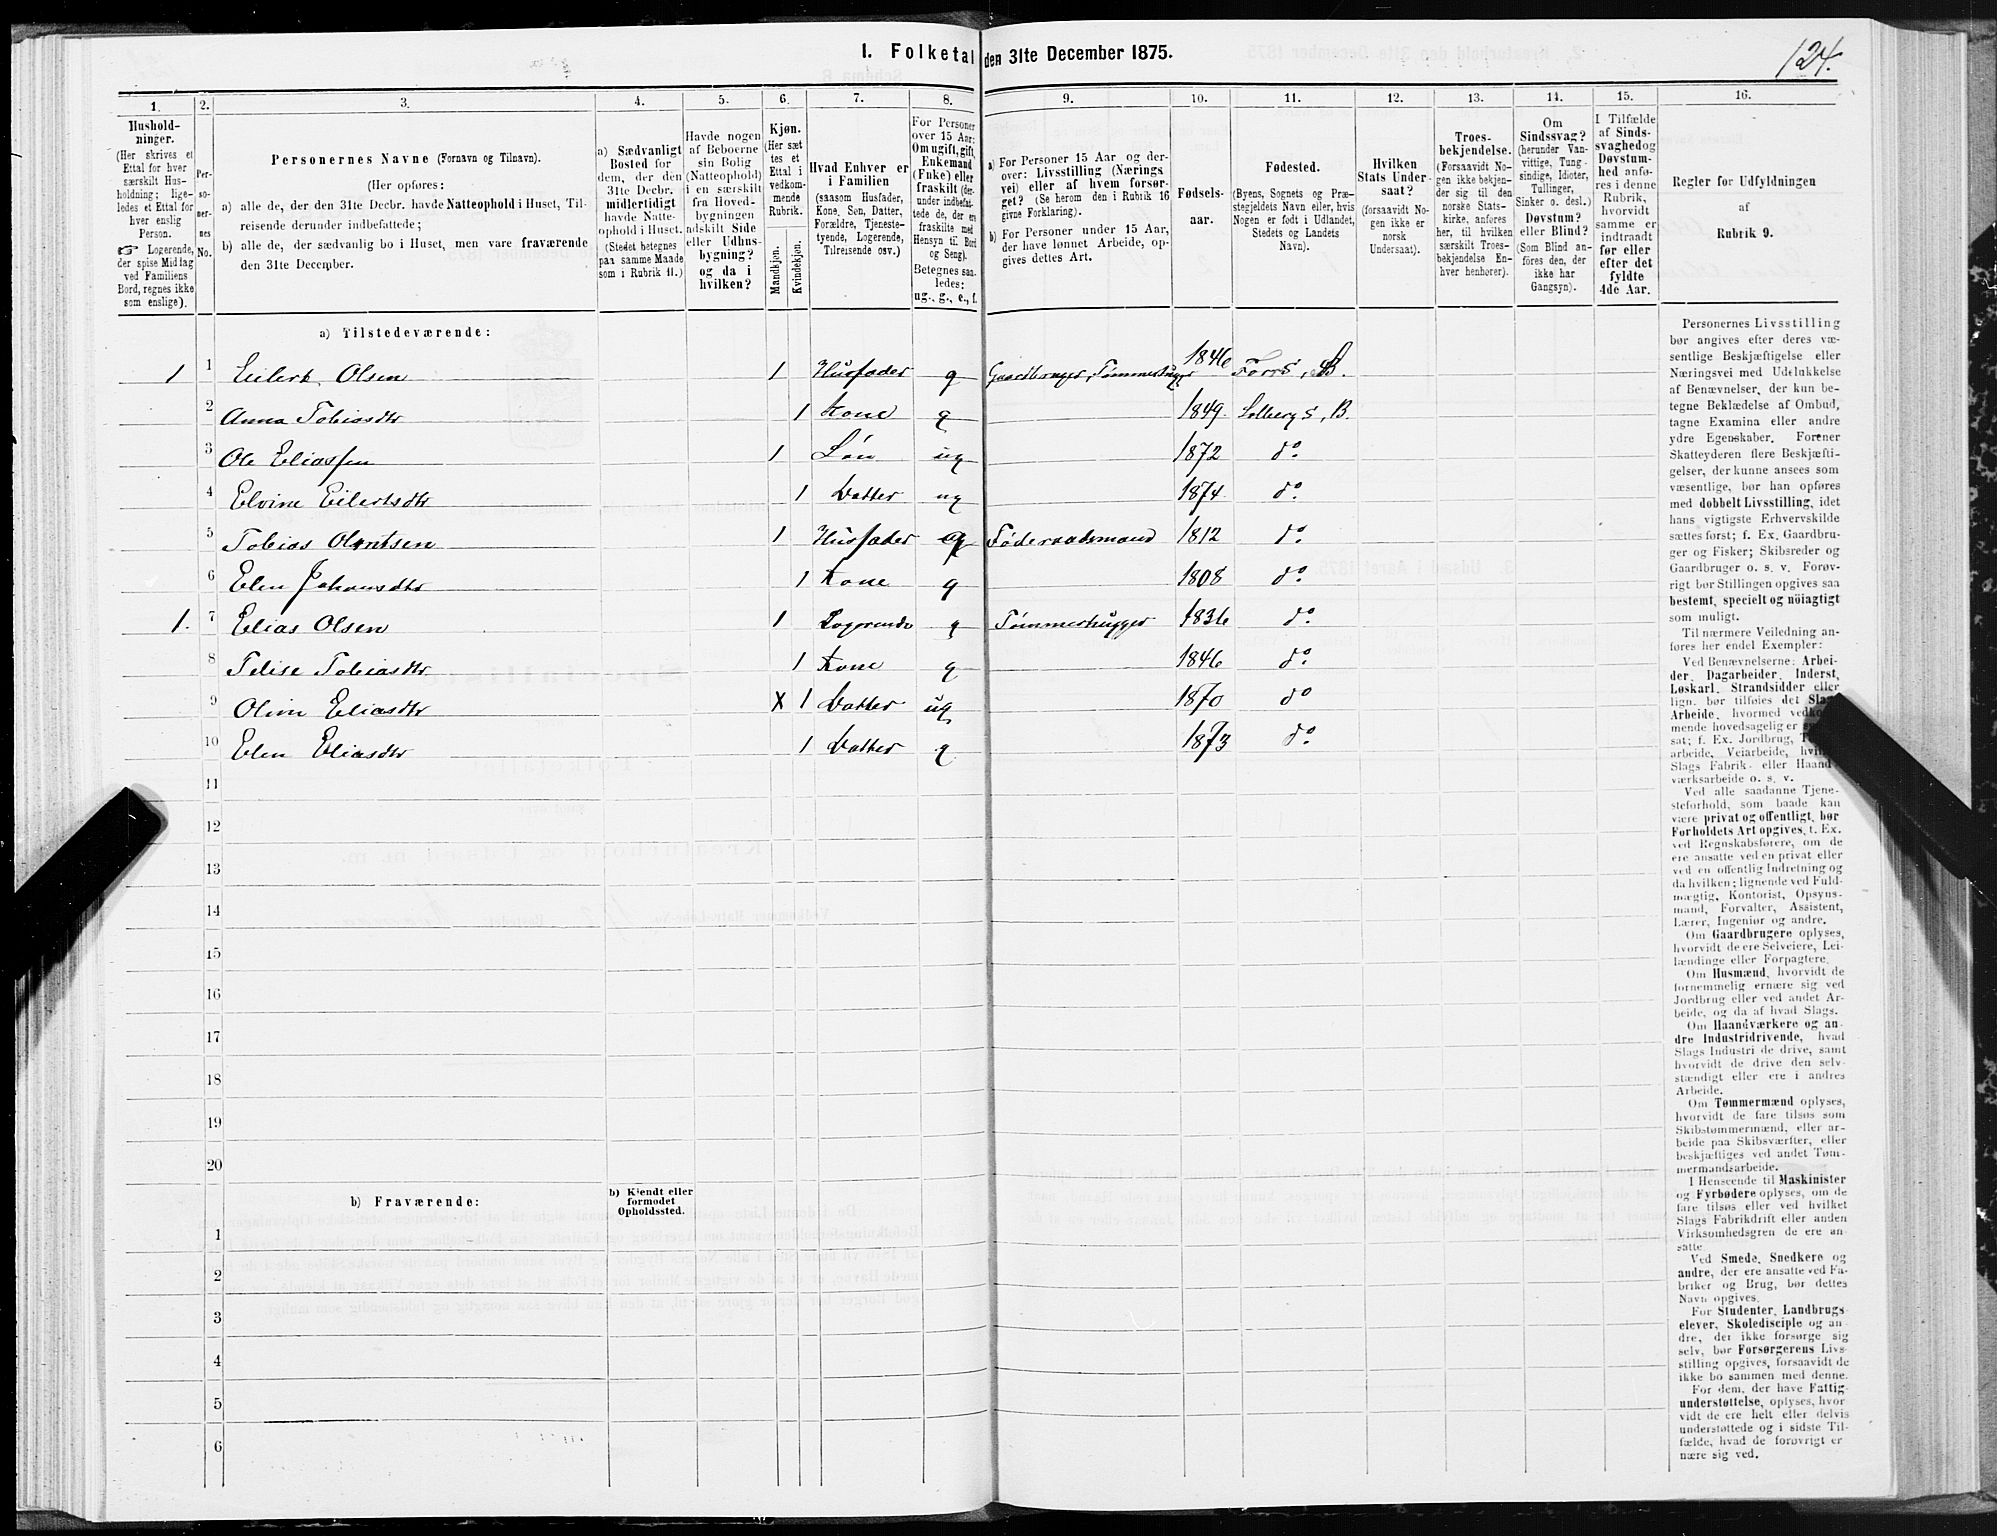 I. Folketal den 31te December 1875.
124.
1.
2.
3.
4.
5.
6.
7.
8.
9.
10.
11.
12.
13.
14.
15.
16.
Hushold-
ninger.
(Her skrives et
Ettal for hver
særskilt Hus-
holdning; lige-
ledes et Ettal for
hver enslig
Person.
☞ Logerende,
der spise Middag
ved Familiens
Bord, regnes ikke
som enslige).
Per-
so-
ner-
nes
No.
Personernes Navne (Fornavn og Tilnavn).
(Her opføres:
a) alle de, der den 31te Decbr. havde Natteophold i Huset, Til-
reisende derunder indbefattede;
b) alle de, der sædvanlig bo i Huset, men vare fraværende
den 31te December.
a) Sædvanligt
Bosted for
dem, der den
31te Decbr.
midlertidigt
havde Natte-
ophold i Huset.
(Stedet betegnes
paa samme Maade
som i Rubrik 11.)
Havde nogen
af Beboerne
sin Bolig
(Natteophold)
i en særskilt
fra Hoved-
bygningen
adskilt Side
eller Udhus-
bygning?
og da i
hvilken?
Kjøn.
(Her sæt
tes et
Ettal i
vedkom-
mende
Rubrik.
Mandkjøn.
Kvindekjøn.
Hvad Enhver er
i Familien
(saasom Husfader,
Kone, Søn, Datter,
Forældre, Tjeneste-
tyende, Logerende,
Tilreisende osv.)
For Personer
over 15 Aar:
Om ugift, gift,
Enkemand
(Enke) eller
fraskilt (der-
under indbefat-
tede de, der ere
fraskilte med
Hensyn til Bord
og Seng).
Betegnes saa-
ledes:
ug., g., e., f.
a) For Personer 15 Aar og der-
over: Livsstilling (Nærings
vei) eller af hvem forsør-
get? (Se herom den i Rubrik 16
givne Forklaring).
b) For Personer under 15 Aar,
der have lønnet Arbeide, op-
gives dettes Art.
Fødsels-
aar.
Fødested.
(Byens, Sognets og Præ-
stegjeldets Navn eller, hvis
Nogen er født i Udlandet,
Stedets og Landets
Navn).
Hvilken
Stats Under-
saat?
(forsaavidt No-
gen ikke er
norsk
Undersaat).
Troes-
bekjendelse.
(Forsaavidt No-
gen ikke bekjen-
der sig til den
norske Stats-
kirke, anføres
her, til hvilken
særskilt Troes-
bekjendelse En-
hver henhører).
Om
Sindssvag?
(herunder Van-
vittige, Tung-
sindige, Idioter,
Tullinger,
Sinker o. desl.)
Døvstum?
eller Blind?
(Som Blind an-
føres den, der
ikke har
Gangsyn).
I Tilfælde
af Sinds-
svaghed og
Døvstum-
hed anfø-
res i denne
Rubrik,
hvorvidt
samme er
indtraadt
før eller
efter det
fyldte
4de Aar.
Regler for Udfyldningen
af
Rubrik 9.
a) Tilstedeværende:
1 1 Eilert Olsen 1 Husfader g Gaardbruger, Tømmerhugger 1846 Fors S, B.
2 Anna Tobiasdtr 1 Kone g 1849. Solberg S, B.
3 Ole Eliassen 1 Søn ug 1872 do.
4 Elvine Eilertsdtr 1 Datter ug 1874. do.
5 Tobias Olontsen 1 Husfader g Føderaadsmand 1812 do.
6 Elen Johansdtr 1 Kone g 1808 do.
1. 7 Elias Olsen 1 Logerende g Tømmerhugger 1836 do.
8 Telise Tobiasdtr 1 Kone g 1846 do.
9 Oline Eliasdtr X 1 Datter ug 1870 do
10 Elen Eliasdtr 1 Datter g 1873 do.
11
12
13
14
15
16
17
18
19
20
b) Fraværende:
b) Kjendt eller
formodet
Opholdssted.
1
2
3
4
5
6
Personernes Livsstilling
bør angives efter deres væ-
sentlige Beskjæftigelse eller
Næringsvei med Udelukkelse
af Benævnelser, der kun be-
tegne Beklædelse af Ombud,
tagne Examina eller andre
ydre Egenskaber. Forener
Skatteyderen flere Beskjæfti-
gelser, der kunne ansees som
væsentlige, bør han opføres
med dobbelt Livsstilling, idet
hans vigtigste Erhvervskilde
sættes først; f. Ex. Gaardbru-
ger og Fisker; Skibsreder og
Gaardbruger o. s. v. Forøv-
rigt bør Stillingen opgives saa
bestemt, specielt og nöiagtigt
som muligt.
Til nærmere Veiledning an-
føres her endel Exempler:
Ved Benævnelserne: Arbei-
der, Dagarbeider, Inderst,
Løskarl, Strandsidder eller
lign. bør tilføies det Slags
Arbeide, hvormed vedkom-
mende hovedsagelig er
sat; f. Ex. Jordbrug,
arbeide, Veiarbeide,
Slags Fabrik- eller Haand-
værksarbeide o. s. v.
Ved alle saadanne Tjene-
steforhold, som baade kan
være privat og offentligt, bør
Forholdets Art opgives, t. Ex.
ved Regnskabsførere, om de
ere ansatte ved en privat eller
ved en offentlig Indretning og
da hvilken; lignende ved Fuld-
mægtig, Kontorist, Opsyns-
mand, Forvalter, Assistent,
Lærer, Ingeniør og andre.
Om Gaardbrugere oplyses,
hvorvidt de ere Selveiere, Lei-
lændinge eller Forpagtere.
Om Husmænd, hvorvidt de
fornemmelig ernære sig ved
Jordbrug eller ved andet Ar-
beide, og da af hvad Slags.
Om Haandværkere og an-
dre Industridrivende, hvad
Slags Industri de drive, samt
hvorvidt de drive den selv-
stændigt eller ere i andres
Arbeide.
Om Tømmermænd oplyses,
hvorvidt de fare tilsøs som
Skibstømmermænd, eller ar-
beide paa Skibsværfter, eller
beskjæftiges ved andet Tøm-
mermandsarbeide.
I Henseende til Maskinister
og Fyrbødere oplyses, om de
fare tilsøs eller ved hvilket
Slags Fabrikdrift eller anden
Virksomhedsgren de ere an-
satte
Ved Smede, Snedkere og
andre, der ere ansatte ved Fa-
briker og Brug, bør dettes
Navn opgives.
For Studenter, Landbrugs-
elever, Skoledisciple og an-
dre, der ikke forsørge sig
selv, bør Forsørgerens Livs-
stilling opgives, forsaavidt de
ikke bo sammen med denne.
For dem, der have Fattig-
understøttelse, oplyses, hvor
vidt de ere helt eller delvis
understøttede og i sidste Til-
fælde, hvad de forøvrigt er
nære sig ved.